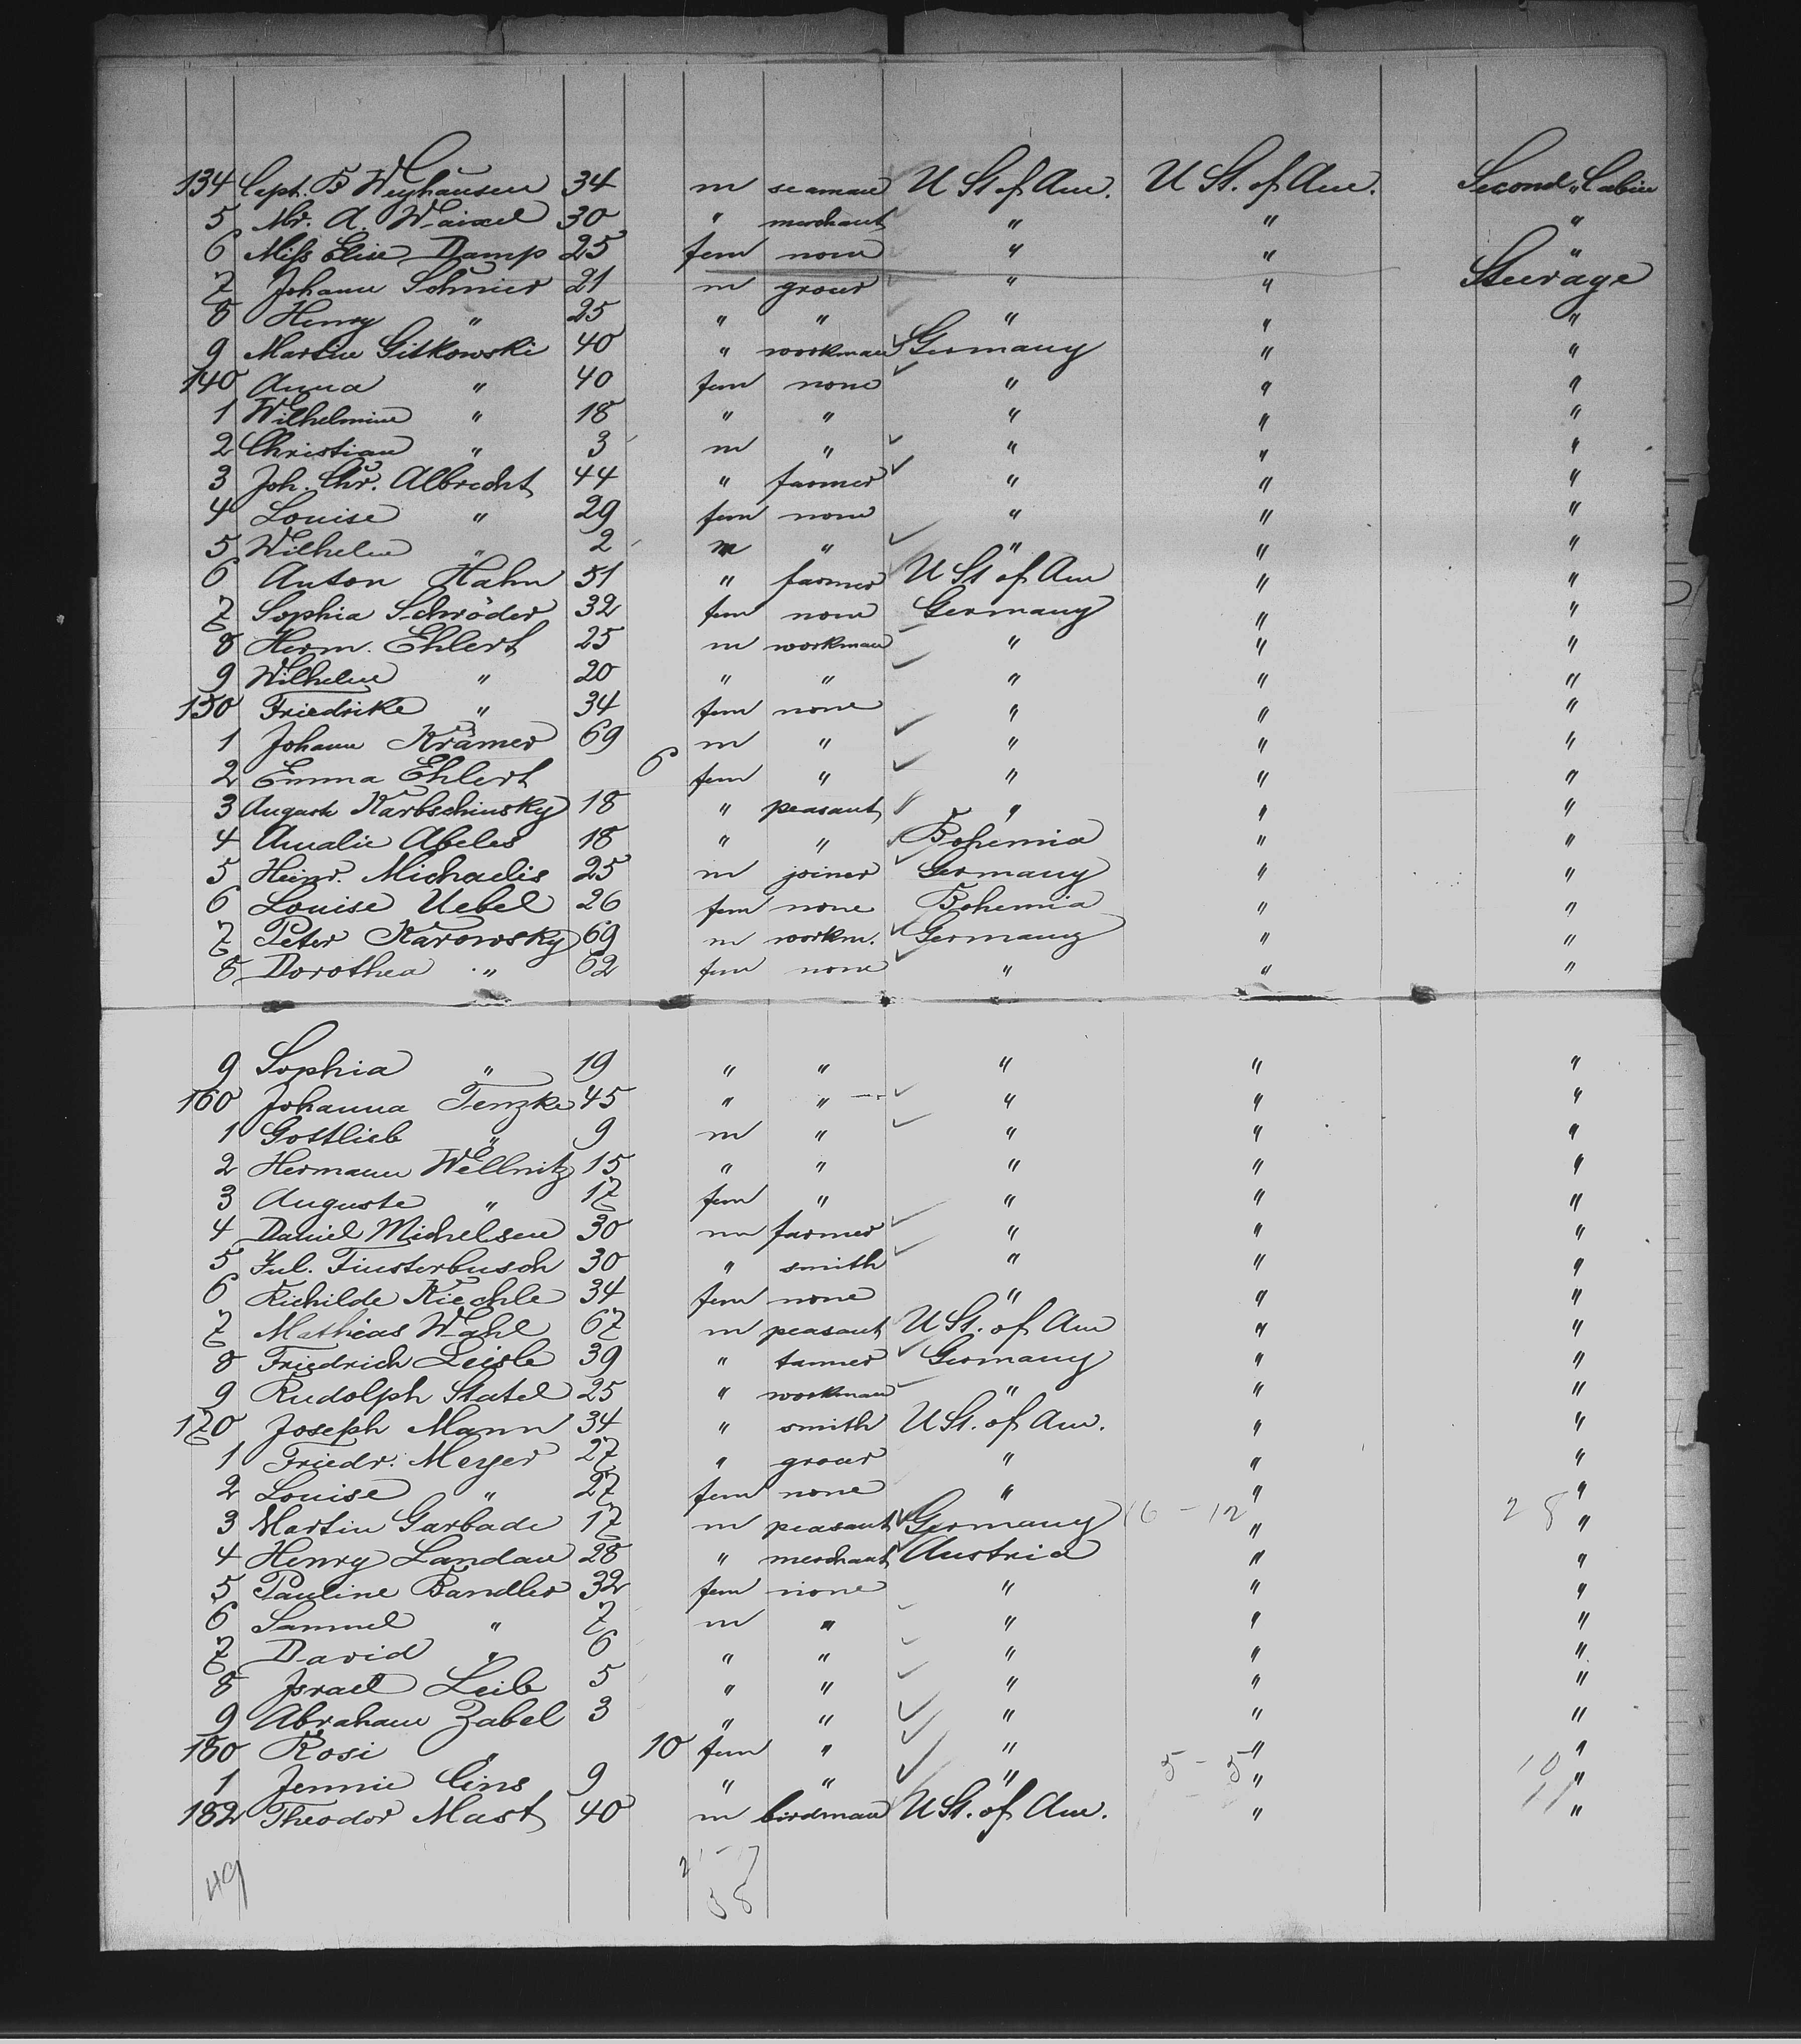 134 Capt. B Weyhausen 34 m seaman U St of Am. U St. of Am. Second Cabin
5 Mr. A. Waixel 30 " merchant " " "
6 Miss Elise Damp 25 fem none " " "
7 Johann Schnier 21 m grocer " " Steerage
8 Henry " 25 " " " " "
9 Martin Gitkowski 40 " workman Germany " "
140 Anna " 40 fem none " " "
1 Wilhelmine " 18 " " " " "
2 Christian " 3 m " " " "
3 Joh. Chr. Albrecht 44 " farmer " " "
4 Louise " 29 fem none " " "
5 Wilhelm " 2 m " " " "
6 Anton Hahn 51 " farmer U St of Am " "
7 Sophia Schröder 32 fem none Germany " "
8 Herm. Ehlert 25 m workman " " "
9 Wilhelm " 20 " " " " "
150 Friedrike " 34 fem none " " "
1 Johann Krämer 69 m " " " "
2 Emma Ehlert 6 fem " " " "
3 Auguste Karbschinsky 18 " peasant " " "
4 Amalie Abeles 18 " " Bohemia " "
5 Heinr. Michaelis 25 m joiner Germany " "
6 Louise Uebel 26 fem none Bohemia " "
7 Peter Karowsky 69 m workm. Germany " "
8 Dorothea " 62 fem none " " "
9 Sophia " 19 " " " " "
160 Johanna Tenzke 45 " " " " "
1 Gottlieb " 9 m " " " "
2 Hermann Wellnitz 15 " " " " "
3 Auguste " 17 fem " " " "
4 Daniel Michelsen 30 m farmer " " "
5 Jul. Finsterbusch 30 " smith " " "
6 Richilde Kiechle 34 fem none " " "
7 Mathias Wahl 67 m peasant U St. of Am " "
8 Friedrich Leisle 39 " tanner Germany " "
9 Rudolph Statel 25 " workman " " "
170 Joseph Mann 34 " smith U St. of Am. " "
1 Friedr. Meyer 27 " grocer " " "
2 Louise " 27 fem none " " "
3 Martin Garbade 17 m peasant Germany 16 - 12 " 28 "
4 Henry Landau 28 " merchant Austria " "
5 Pauline Bandler 32 fem none " " "
6 Samuel " 7 m " " " "
7 David " 6 " " " " "
8 Israel Leib 5 " " " " "
9 Abraham Zabel 3 " " " " "
180 Rosi " 10 fem " " " "
1 Jennie Cins 9 " " " 5 - 5 " 10 "
182 Theodor Mast 40 m birdman U St. of Am. " 11 "
49 21 - 17
38